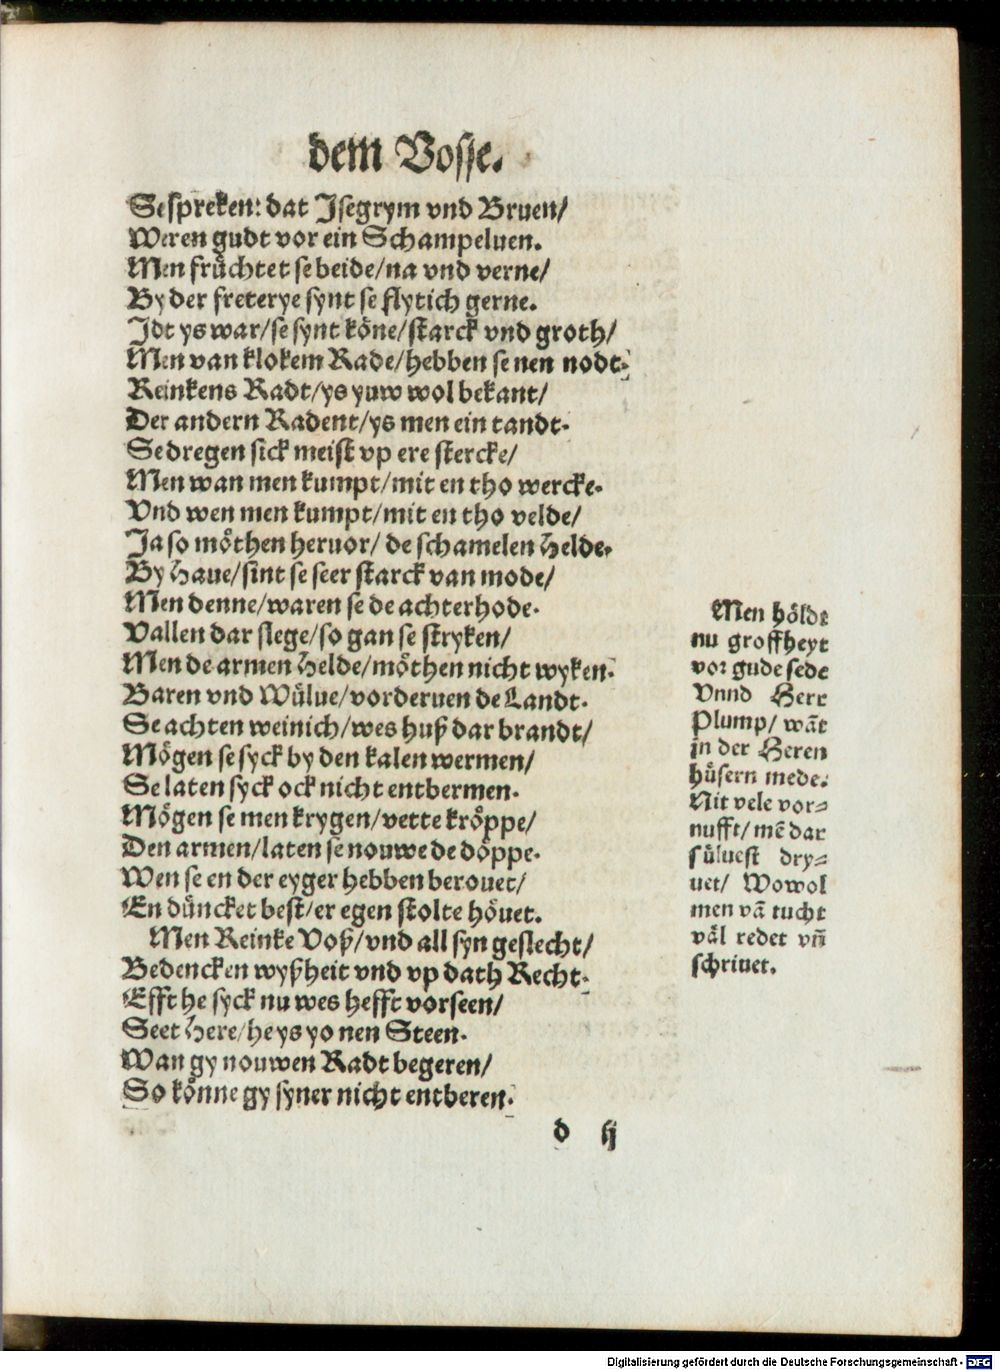 dem Vosse.
Se spreken: dat Isegrym vnd Bruen/
Weren gudt vor ein Schampeluen.
Men früchtet se beide/na vnd verne/
By der freterye synt se flytich gerne.
Idt ys war/se synt köne/starck vnd groth/
Men van klokem Rade/hebben se nen nodt.
Reinkens Radt/ys yuw wol bekant/
Der andern Radent/ys men ein tandt.
Se dregen sick meist vp ere stercke/
Men wan men kumpt/mit en tho wercke.
Vnd wen men kumpt/mit en tho velde/
Ja so möthen heruor/ de schamelen Helde.
By Haue/sint se seer starck van mode/
Men denne/waren se de achterhode.
Vallen dar slege/so gan se stryken/
Men de armen Helde/möthen nicht wyken.
Baren vnd Wülue/vorderuen de Landt.
Se achten weinich/wes huß dar brandt/
Mögen se syck by den kalen wermen/
Se laten syck ock nicht entbermen.
Mögen se men krygen/vette kröppe/
Den armen/laten se nouwe de döppe.
Wen se en der eyger hebben berouet/
En düncket best/er egen stolte höuet.
Men Reinke Voß/vnd all syn geslecht/
Bedencken wyßheit vnd vp dath Recht.
Efft he syck nu wes hefft vorseen/
Seet Here/he ys yo nen Steen.
Wan gy nouwen Radt begeren/
So könne gy syner nicht entberen.
d ij
Men hölde
nu groffheyt
vor gude sede
Vnnd Herr
Plump/ wāt
in der Heren
hüsern mede.
Nit vele vor⸗
nufft/ mē dar
süluest dry⸗
uet/ Wowol
men vā tucht
väl redet vn̄
schriuet.
Digitalisierung gefördert durch die Deutsche Forschungsgemeinschaft - DFG